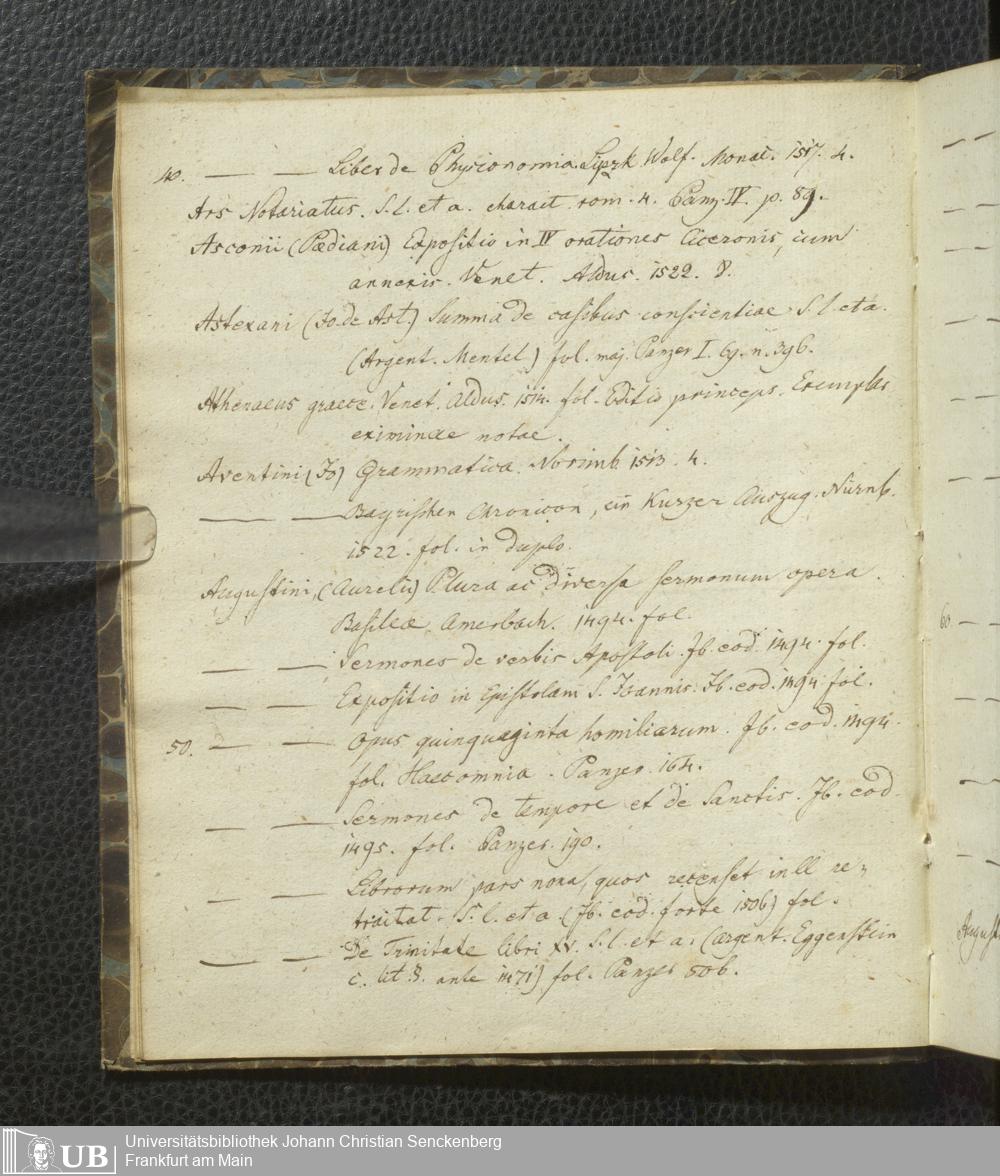 40. — — Liber de Physionomia. Lipzk Wolf. Monac. 1517. 4.
Ars Notariatus. S. l. et a. charact. rom. 4. Panz. IV. p. 89.
Asconii (Pædiani) Expositio in IV orationes Ciceronis, cum
annexis. Venet. Aldus. 1522. 8.
Astexani (Jo. de Ast.) Summa de casibus conscientiae S. l. et a.
(Argent. Mentel) fol. maj. Panzer I. 69. n. 396.
Athenaeus graece. Venet. Aldus. 1514. fol. Editio princeps. Exemplar
eximinae notae.
Aventini (Jo) Grammatica. Norimb 1513. 4.
— — Bayrischen Chronicon, ein Kurzer Auszug. Nürnb.
1522. fol. in duplo.
Augustini, (Aurelii) Plura ac diversa sermonum opera.
Basileæ Amerbach. 1494. fol.
— — Sermones de verbis Apostoli. Ib. eod. 1494. fol.
— — Expositio in Epistolam S. Joannis. Ib. eod. 1494. fol.
50. — — Opus quinquaginta homiliarum. Ib. eod. 1494.
fol. Haec omnia. Panzer. 164.
— — Sermones de tempore et de Sanctis. Ib. eod.
1495. fol. Panzer. 190.
— — Librorum pars nona, quos recenset in II re-
tractat. S. l. et a (Ib. eod. forte 1506) fol.
— — De Trinitate libri XV. S. l. et a. (Argent. Eggenstein
c. lit. §. ante 1471) fol. Panzer 506.
60.
August
UB Universitätsbibliothek Johann Christian Senckenberg
Frankfurt am Main